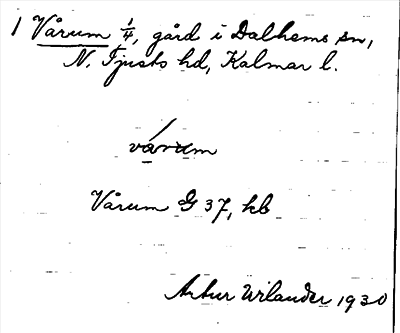 1 Vårum 1/4, gård i Dalhems sn,
N. Tjusts hd, Kalmar l.
várum
Vårum G 37, kb
Artur Wilander 1930